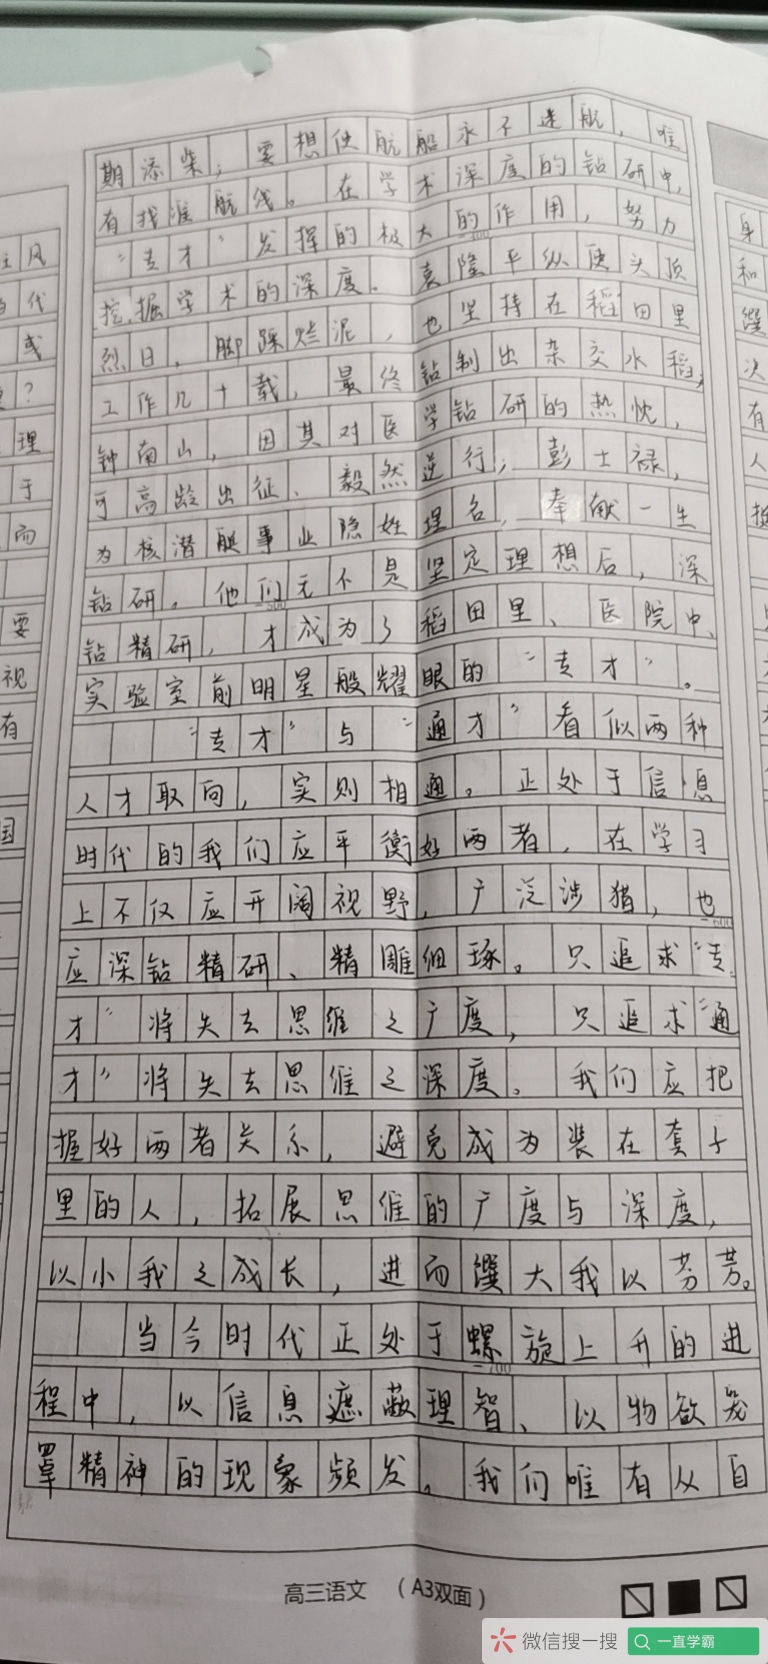 期添柴；要想使航船永不迷航，唯
有找准航线。在学术深度的钻研中，
“专才”发挥的极大的作用，努力
挖掘学术的深度。袁隆平纵使头顶
烈日，脚踩烂泥，也坚持在稻田里
工作几十载，最终钻制出杂交水稻；
钟南山，因其对医学钻研的热忱，
可高龄出征、毅然逆行；彭士禄，
为核潜艇事业隐姓埋名，奉献一生
钻研。他们无不是坚定理想后，深
钻精研，才成为了稻田里、医院中、
实验室前明星般耀眼的“专才”。
“专才”与“通才”看似两种
人才取向，实则相通。正处于信息
时代的我们应平衡好两者，在学习
上不仅应开阔视野，广泛涉猎，也
应深钻精研、精雕细琢。只追求“专
才”将失去思维之广度，只追求“通
才”将失去思维之深度。我们应把
握好两者关系，避免成为装在套子
里的人，拓展思维的广度与深度，
以小我之成长，进而馔大我以芬芳。
当今时代正处于螺旋上升的进
程中，以信息遮蔽理智、以物欲笼
罩精神的现象频发。我们唯有从自
-400
-500
-600
-700
高三语文 （A3双面）
注风
当代
或
?
理
于
而
要
视
有
国
身
和
馔
次
有
人
微信搜一搜
一直学霸